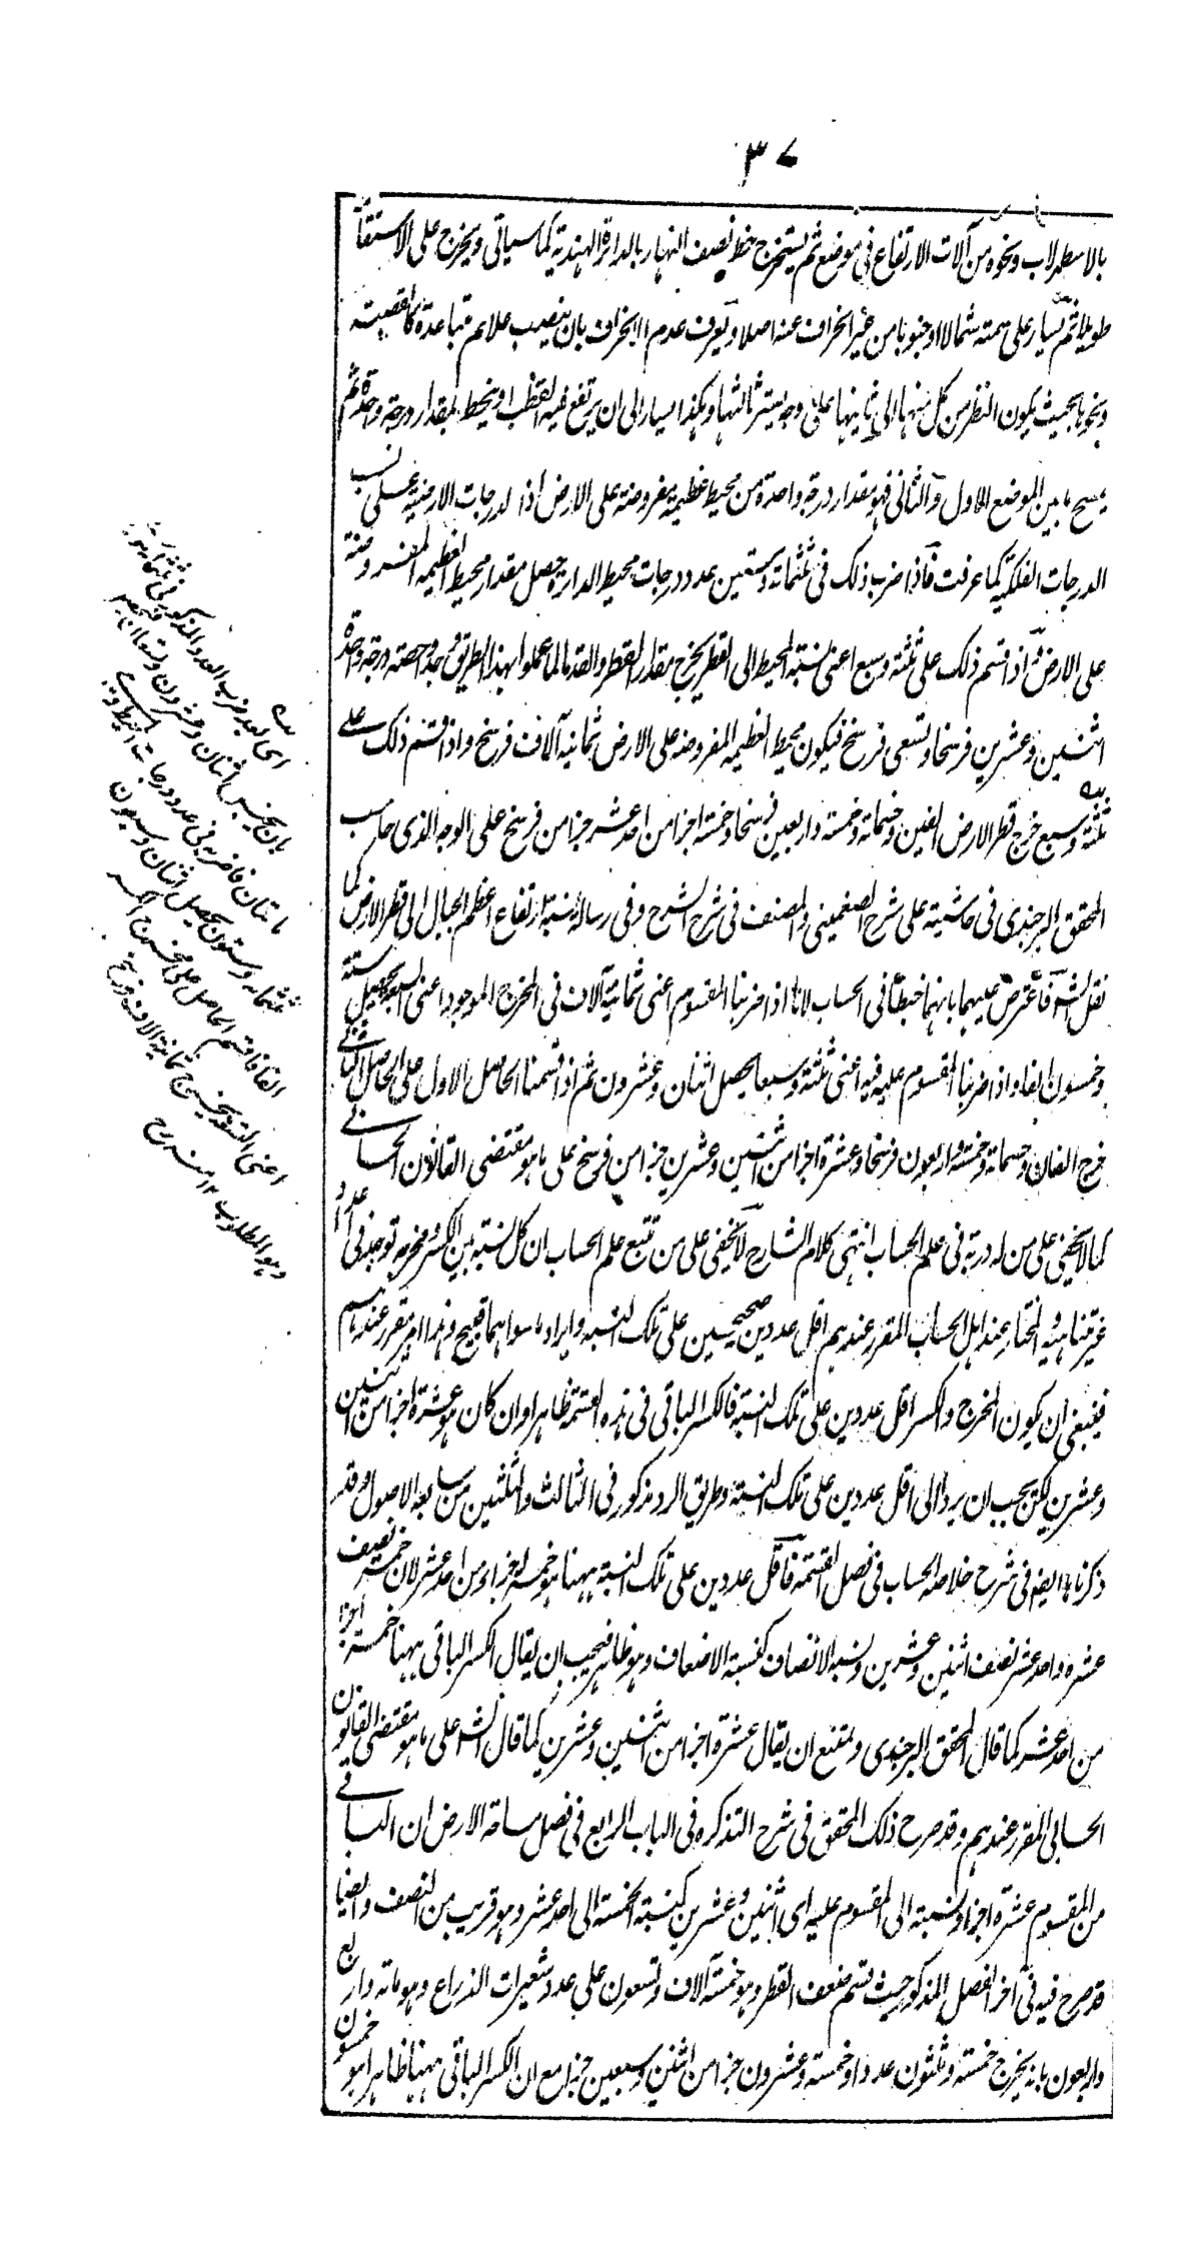 ٣٧
بالاسطرلاب ونحوه من آلات الارتفاع فى موضع ثم يستخرج خط نصف النهار بالدائرة الهندية كما سياتى ويخرج على الاستقا
طويلا ثم يسار على سمته شمالا او جنوبا من غير انحراف عنه اصلا ويعرف عدم الانحراف بان ينصب علائم متباعدة كالقصبة
ونحوها بحيث يكون النظر من كل منها الى ثانيها على وجه يستر ثالثها وهكذا يسار الى ان يرتفع فيه القطب او ينحط بمقدار درجة واحدة ثم
يمسح ما بين الموضع الاول والثانى فهو مقدار درجة واحدة من محيط عظيمة مفروضة على الارض اذ الدرجات الارضية على نسب
الدرجات الفلكية كما عرفت فاذا ضرب ذلك فى ثلثمائة وستين عدد درجات محيط الدائرة حصل مقدار محيط العظيمة المفروضة
على الارض ثم اذا قسم ذلك على ثلثة وسبع اعنى نسبة المحيط الى القطر يخرج مقدار القطر والقدما لما عملوا بهذا الطريق وجدوا حصة درجة واحدة
اثنين وعشرين فرسخا وتسعى فرسخ فيكون محيط العظيمة المفروضة على الارض ثمانية آلاف فرسخ واذا قسم ذلك على
ثلثة وسبع خرج قطر الارض الفين وخمسمائة وخمسة واربعين فرسخا وخمسة اجزا من احد عشر جزا من فرسخ على الوجه الذى حاسب
المحقق البرجندى فى حاشيته على شرح الچغمينى والمصنف فى شرح الشرح وفى رسالة نسبة ارتفاع اعظم الجبال الى قطر الارض كما
نقل الش فاعترض عليهما بانهما خبطا فى الحساب لانا اذا ضربنا المقسوم اعنى ثمانية آلاف فى المخرج الموجود اعنى السبعة يحصل ستة
وخمسون الفا واذا ضربنا المقسوم عليه فيه اعنى ثلثة وسبعا يحصل اثنان وعشرون ثم اذا قسمنا الحاصل الاول على الحاصل الثانى
خرج الفان وخمسمائة وخمسة واربعون فرسخا وعشرة اجزا من اثنين وعشرين جزا من فرسخ على ما هو مقتضى القانون الحسابى
كما لا يخفى على من له دربة فى علم الحساب انتهى كلام الشارح لا يخفى على من تتبع علم الحساب ان كل نسبة بين الكسر ومخرجه توجد فى اعداد
غير متناهية والمختار عند اهل الحساب المقرر عندهم اقل عددين صحيحين على تلك النسبة وايراد ما سواهما قبيح وهذا امر مقرر عندهم
فينبغى ان يكون المخرج والكسر اقل عددين على تلك النسبة فالكسر الباقى فى هذه القسمة ظاهرا وان كان هو عشرة اجزا من اثنين
وعشرين لكن يجب ان يرد الى اقل عددين على تلك النسبة وطريق الرد مذكور فى الثالث والثلثين من سابعة الاصول وقد
ذكرنا ايضا فى شرح خلاصة الحساب فى فصل القسمة فاقل عددين على تلك النسبة ههنا هو خمسة اجزاء من احد عشر لان خمسة نصيف
عشرة واحد عشر نصف اثنين وعشرين ونسبة الانصاف كنسبة الاضعاف وهو ظاهر فيجب ان يقال الكسر الباقى ههنا خمسة اجزا
من احد عشر كما قال المحقق البرجندى ويمتنع ان يقال عشرة اجزا من اثنين وعشرين كما قال الش على ما هو مقتضى القانون
الحسابى المقرر عندهم وقد صرح ذلك المحقق فى شرح التذكرة فى الباب الرابع فى فصل مساحة الارض ان الباقى
من المقسوم عشرة اجزاء ونسبته الى المقسوم عليه اى اثنين وعشرين كنسبة الخمسة الى احد عشر وهو قريب من النصف وايضا
قد صرح فيه فى آخر الفصل المذكور حيث قسم ضعف القطر وهو خمسة آلاف وتسعون على عدد شعيرات الذراع وهو مائة واربع
واربعون بانه يخرج خمسة وثلثون عددا وخمسة وعشرون جزا من اثنين وسبعين جزا مع ان الكسر الباقى ههنا ظاهرا هو خمسون
اى بعد ضرب العدد المذكور فى
بان يجنس اثنان وعشرون وتسعان
مائتان فاضربه فى عدد درجات المحيط
ثلثمائة وستون يحصل اثنان وسبعون
الفا فاقسم الحاصل على مخرج الكسر
اعنى التسعة يخرج ثمانية آلاف فرسخ
وهو المطلوب ١٢ منه رح